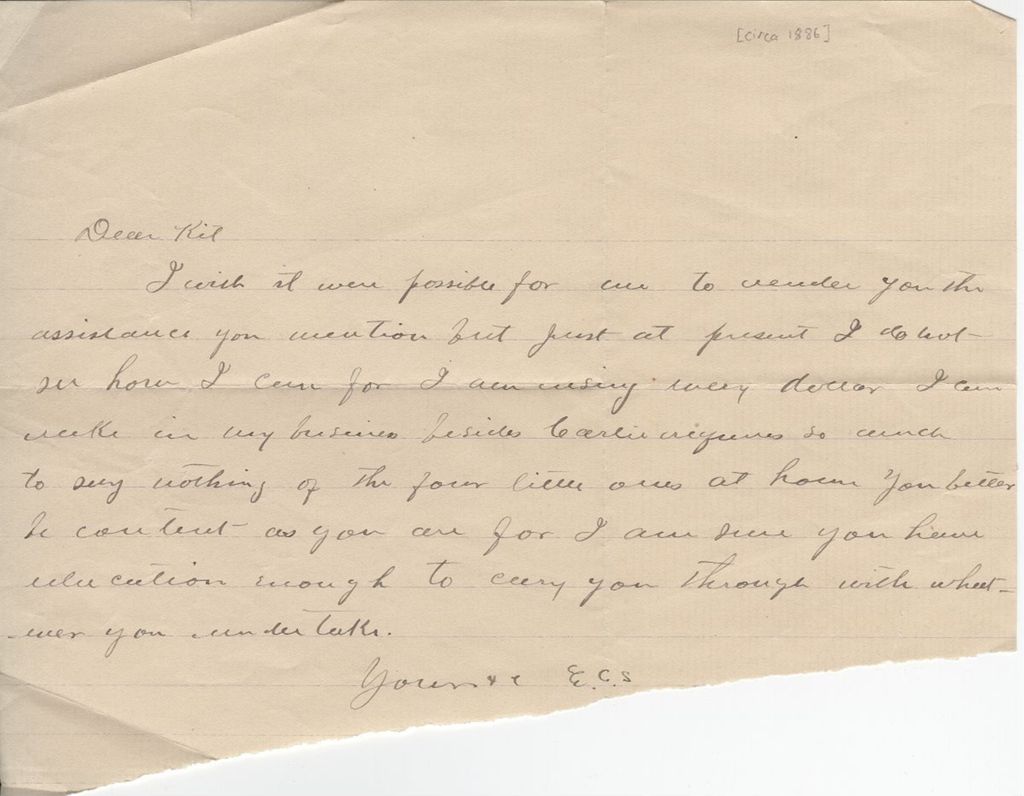 [circa 1886]
Dear Kit
I wish it were possible for me to render you the
assistance you mention but just at present I do not
see how I can for I am using every dollar I can
make in my business besides Carlie requires so much
to say nothing of the four little ones at home You better
be content as you are for I am sure you have
education enough to carry you through with what-
-ever you undertake.
Yours &c E.C.S